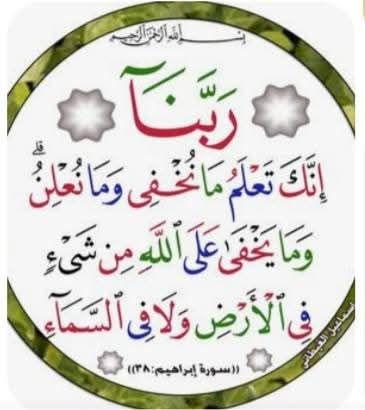 بِسْمِ اللَّهِ الرَّحْمَٰنِ الرَّحِيمِ
رَبَّنَآ
إِنَّكَ تَعْلَمُ مَا نُخْفِى وَمَا نُعْلِنُ ۗ
وَمَا يَخْفَىٰ عَلَى ٱللَّهِ مِن شَىْءٍ
فِى ٱلْأَرْضِ وَلَا فِى ٱلسَّمَآءِ
((سورة إبراهيم:٣٨))
إسماعيل الغيطاني